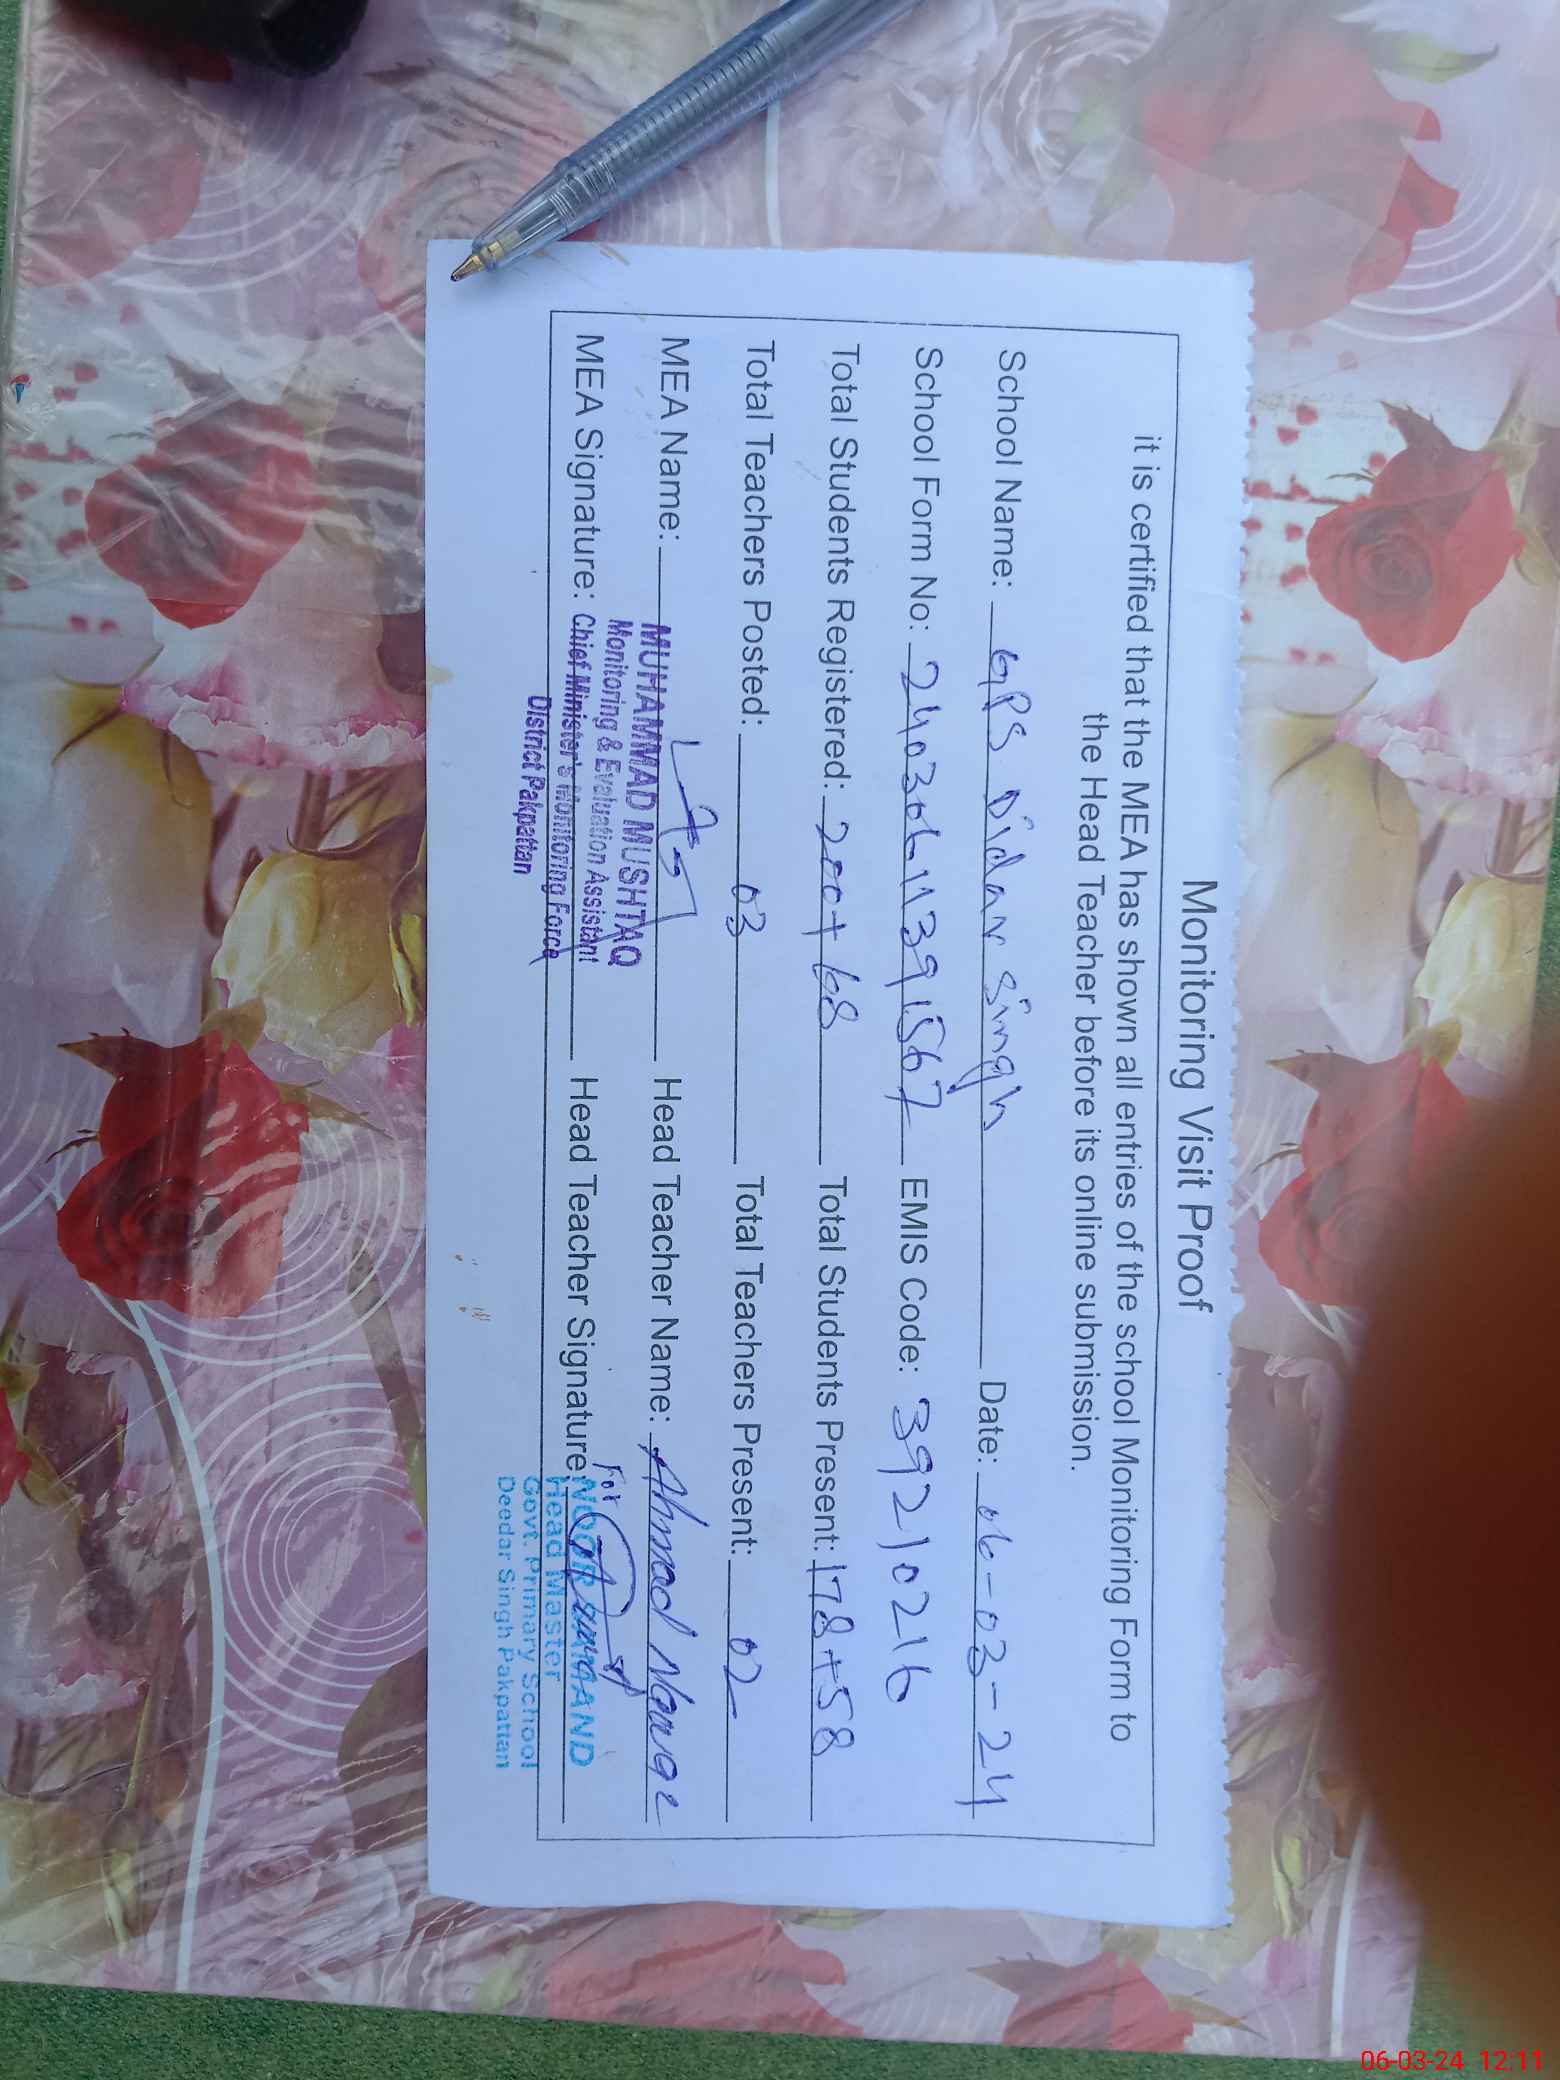 Monitoring Visit Proof
it is certified that the MEA has shown all entries of the school Monitoring Form to
the Head Teacher before its online submission.
School Name: GPS Didar singh Date: 06-03-24
School Form No: 24030611391567 EMIS Code: 39210216
Total Students Registered: 200+68 Total Students Present: 178+58
Total Teachers Posted: 03 Total Teachers Present: 02
MEA Name: MUHAMMAD MUSHTAQ Head Teacher Name: Ahmad
Monitoring & Evaluation Assistant
MEA Signature: Chief Minister's Monitoring Force Head Teacher Signature: For NOOR
District Pakpattan
Head Master
Govt. Primary School
Deedar Singh Pakpattan
06-03-24 12:11